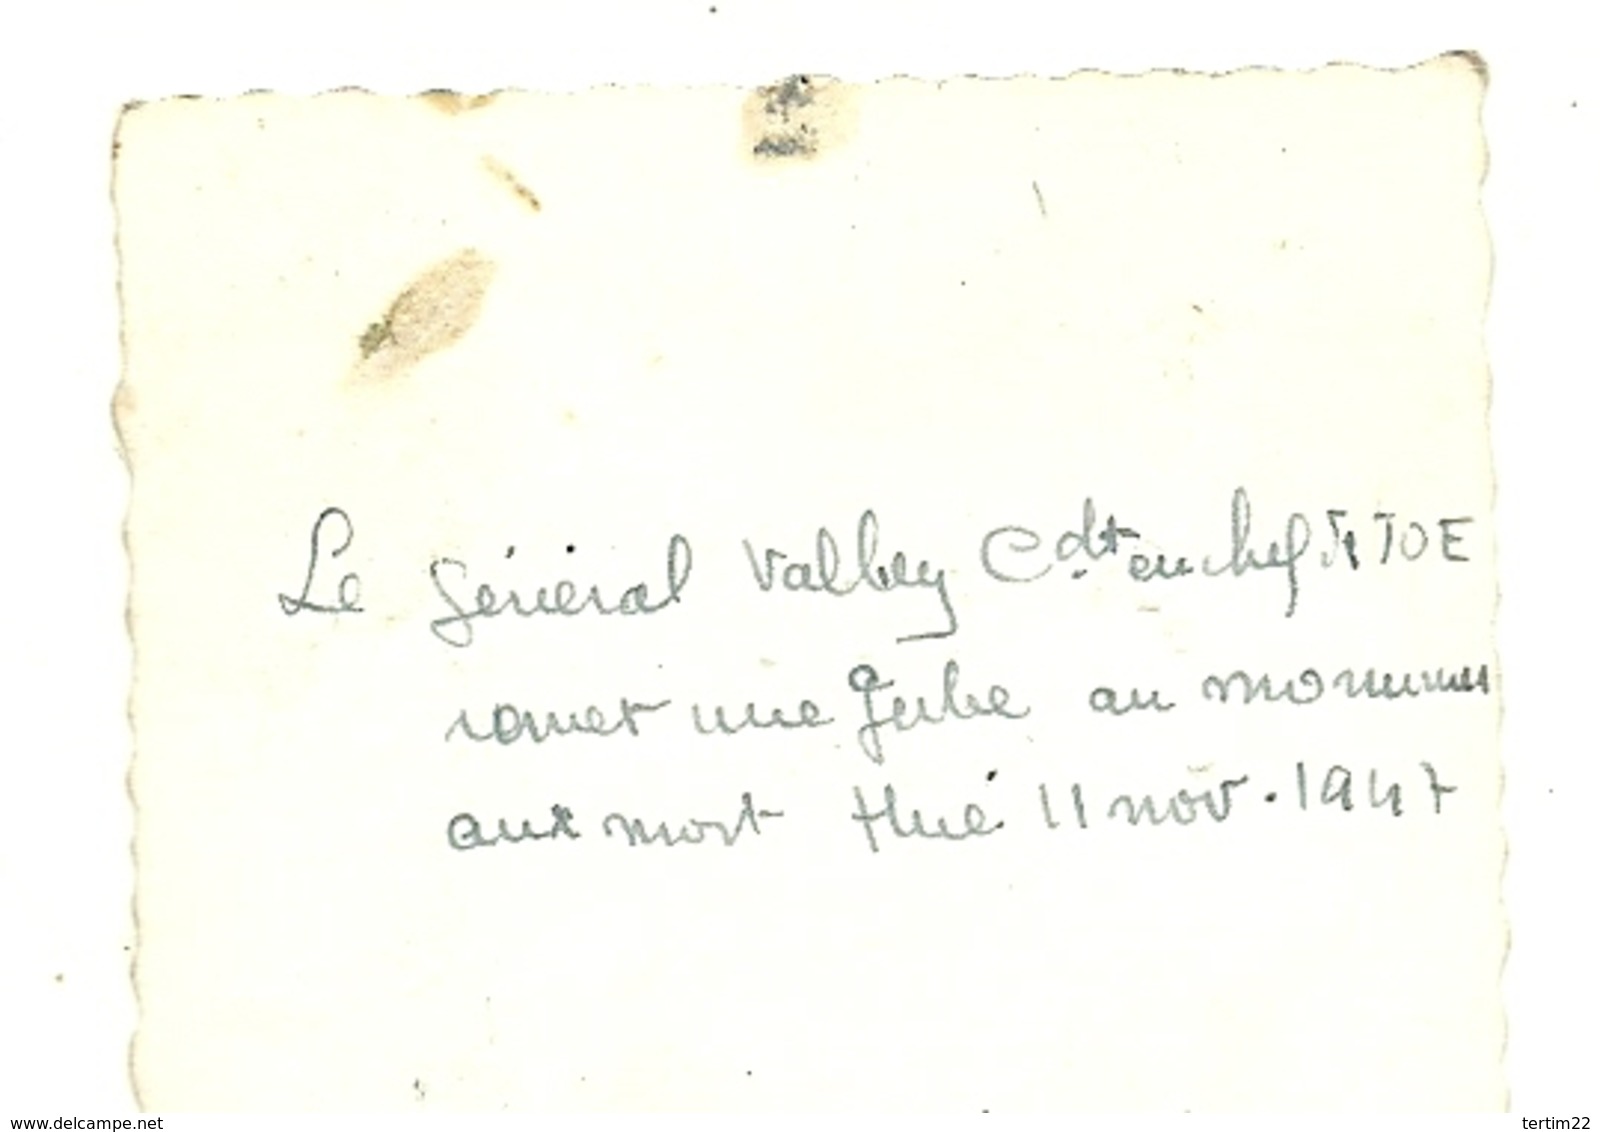 Le général Valluy Cdt en chef Tr TOE
remet une gerbe au monument
aux mort Hué 11 nov. 1947
www.delcampe.net
tertim22